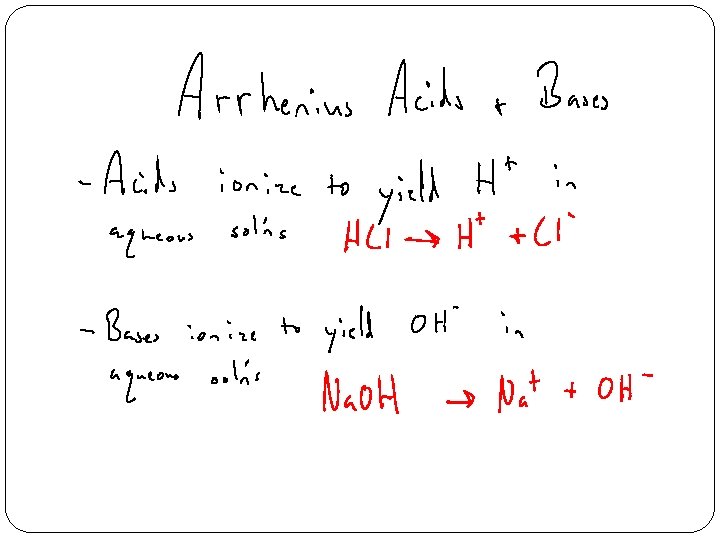 Arrhenius Acids + Bases
- Acids ionize to yield H⁺ in
aqueous sol'ns HCl → H⁺ + Cl⁻
- Bases ionize to yield OH⁻ in
aqueous sol'ns NaOH → Na⁺ + OH⁻